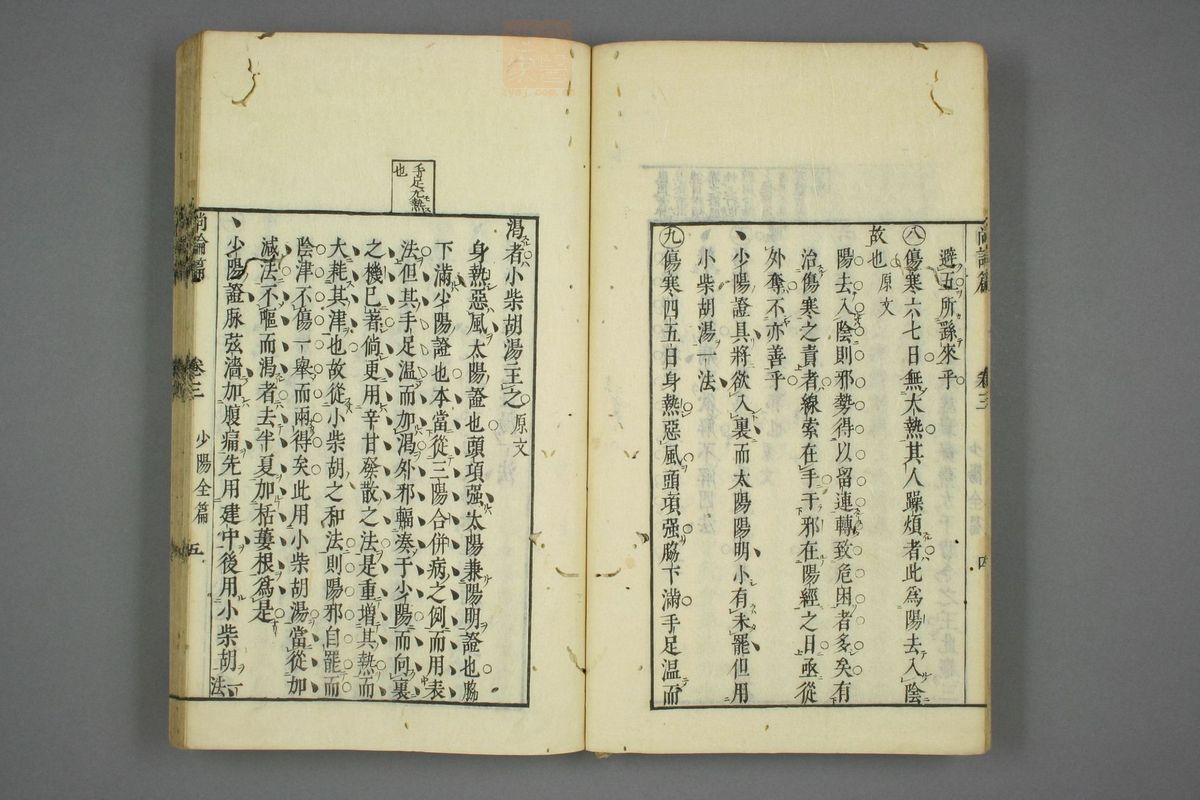 尚論篇 卷三 少陽全篇 四
避五所繇來乎
㊇傷寒六七日無大熱其人躁煩者此爲陽去入陰
故也原文
陽去入陰則邪勢得以留連轉致危困者多矣有
治傷寒之責者線索在手于邪在陽經之日亟從
外奪不亦善乎
丶少陽證具將欲入裏而太陽陽明小有未罷但用
小柴胡湯一法
㊈傷寒四五日身熱惡風頭項强脇下滿手足温而
渴者小柴胡湯主之原文
身熱惡風太陽證也頭項强太陽兼陽明證也脇
下滿少陽證也本當從三陽合併病之例而用表
法但其手足温而加渴外邪輻湊于少陽而向裏
之機已著倘更用辛甘發散之法是重增其熱而
大耗其津也故從小柴胡之和法則陽邪自罷而
陰津不傷一舉而兩得矣此用小柴胡湯當從加
減法不嘔而渴者去半夏加栝蔞根爲是
丶少陽證脉弦濇加腹痛先用建中後用小柴胡一法
尚論篇 卷三 少陽全篇 五
手足尤熱
也